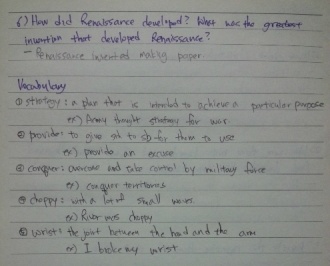 6) How did Renaissance developed? What was the greatest
invention that developed Renaissance?
- Renaissance invented making paper
Vocabulary
① strategy: a plan that is intended to achieve a particular purpose
ex) Army thought strategy for war
② provide: to give sth to sb for them to use
ex) provide an excuse
③ conquer: overcome and take control by military force
ex) conquer territories
④ choppy: with a lot of small waves
ex) River was choppy
⑤ wrist: the joint between the hand and the arm
ex) I broke my wrist